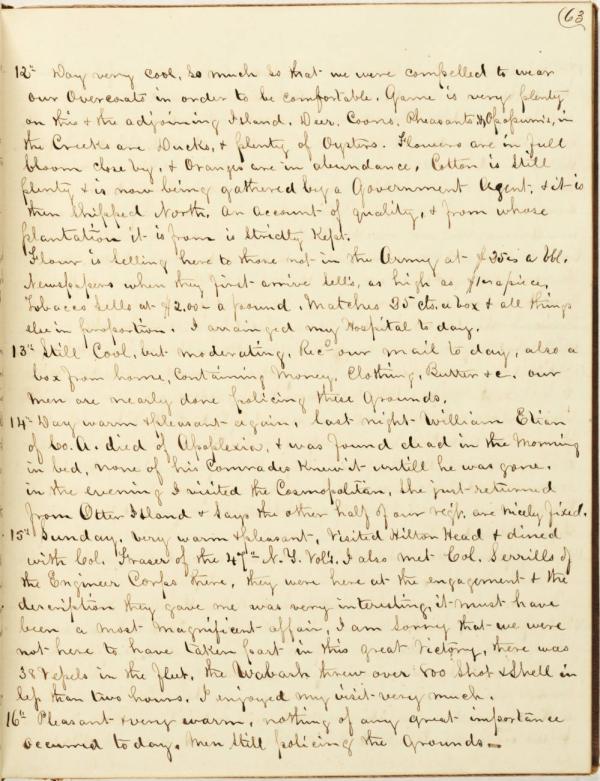 63
12th Day very cool, so much so that we were compelled to wear
our Overcoats in order to be comfortable. Game is very plenty
on this & the adjoining Island. Deer, Coons, Pheasants & Opopsums, in
the Creeks are Ducks, & plenty of Oysters. Flowers are in full
bloom close by, & Oranges are in abundance. Cotton is still
plenty & is now being gathered by a Government Agent, & it is
then shipped North, an account of quality, & from whose
plantation it is from is strictly Kept.
Flour is selling here to those not in the Army at $25 is a bbl.
Newspapers when they first arrive sells, as high as $1 a piece,
Tobacco sells at $2.00 a pound, Matches 25 cts. a box & all things
else in proportion. I arrainged my Hospital to day.
13th Still Cool, but moderating, Recd our mail to day, also a
box from home, Containing Money, Clothing, Butter &c. our
men are nearly done policing these Grounds.
14th Day warm & pleasant again, last night William
of Co. A. died of Apoplexia, & was found dead in the Morning
in bed, none of his Comrades knew it untill he was gone.
in the evening I visited the Cosmopolitan, She just returned
from Otter Island & Says the other half of our regt. are nicely fixed.
15th Sunday. very warm & pleasant, Visited Hilton Head & dined
with Col. Fraser of the 47th N.Y. Vols. I also met Col. Serrills of
the Engineer Corps here, they were here at the engagement & the
description they gave me was very interesting, it must have
been a most magnificent affair, I am Sorry that we were
not here to have taken part in this great Victory, there was
38 Vessels in the fleet, the Wabash threw over 800 Shot & Shell in
less than two hours. I enjoyed my visit very much.
16th Pleasant & very warm, nothing of any great importance
occurred to day. Men Still policing the Grounds.